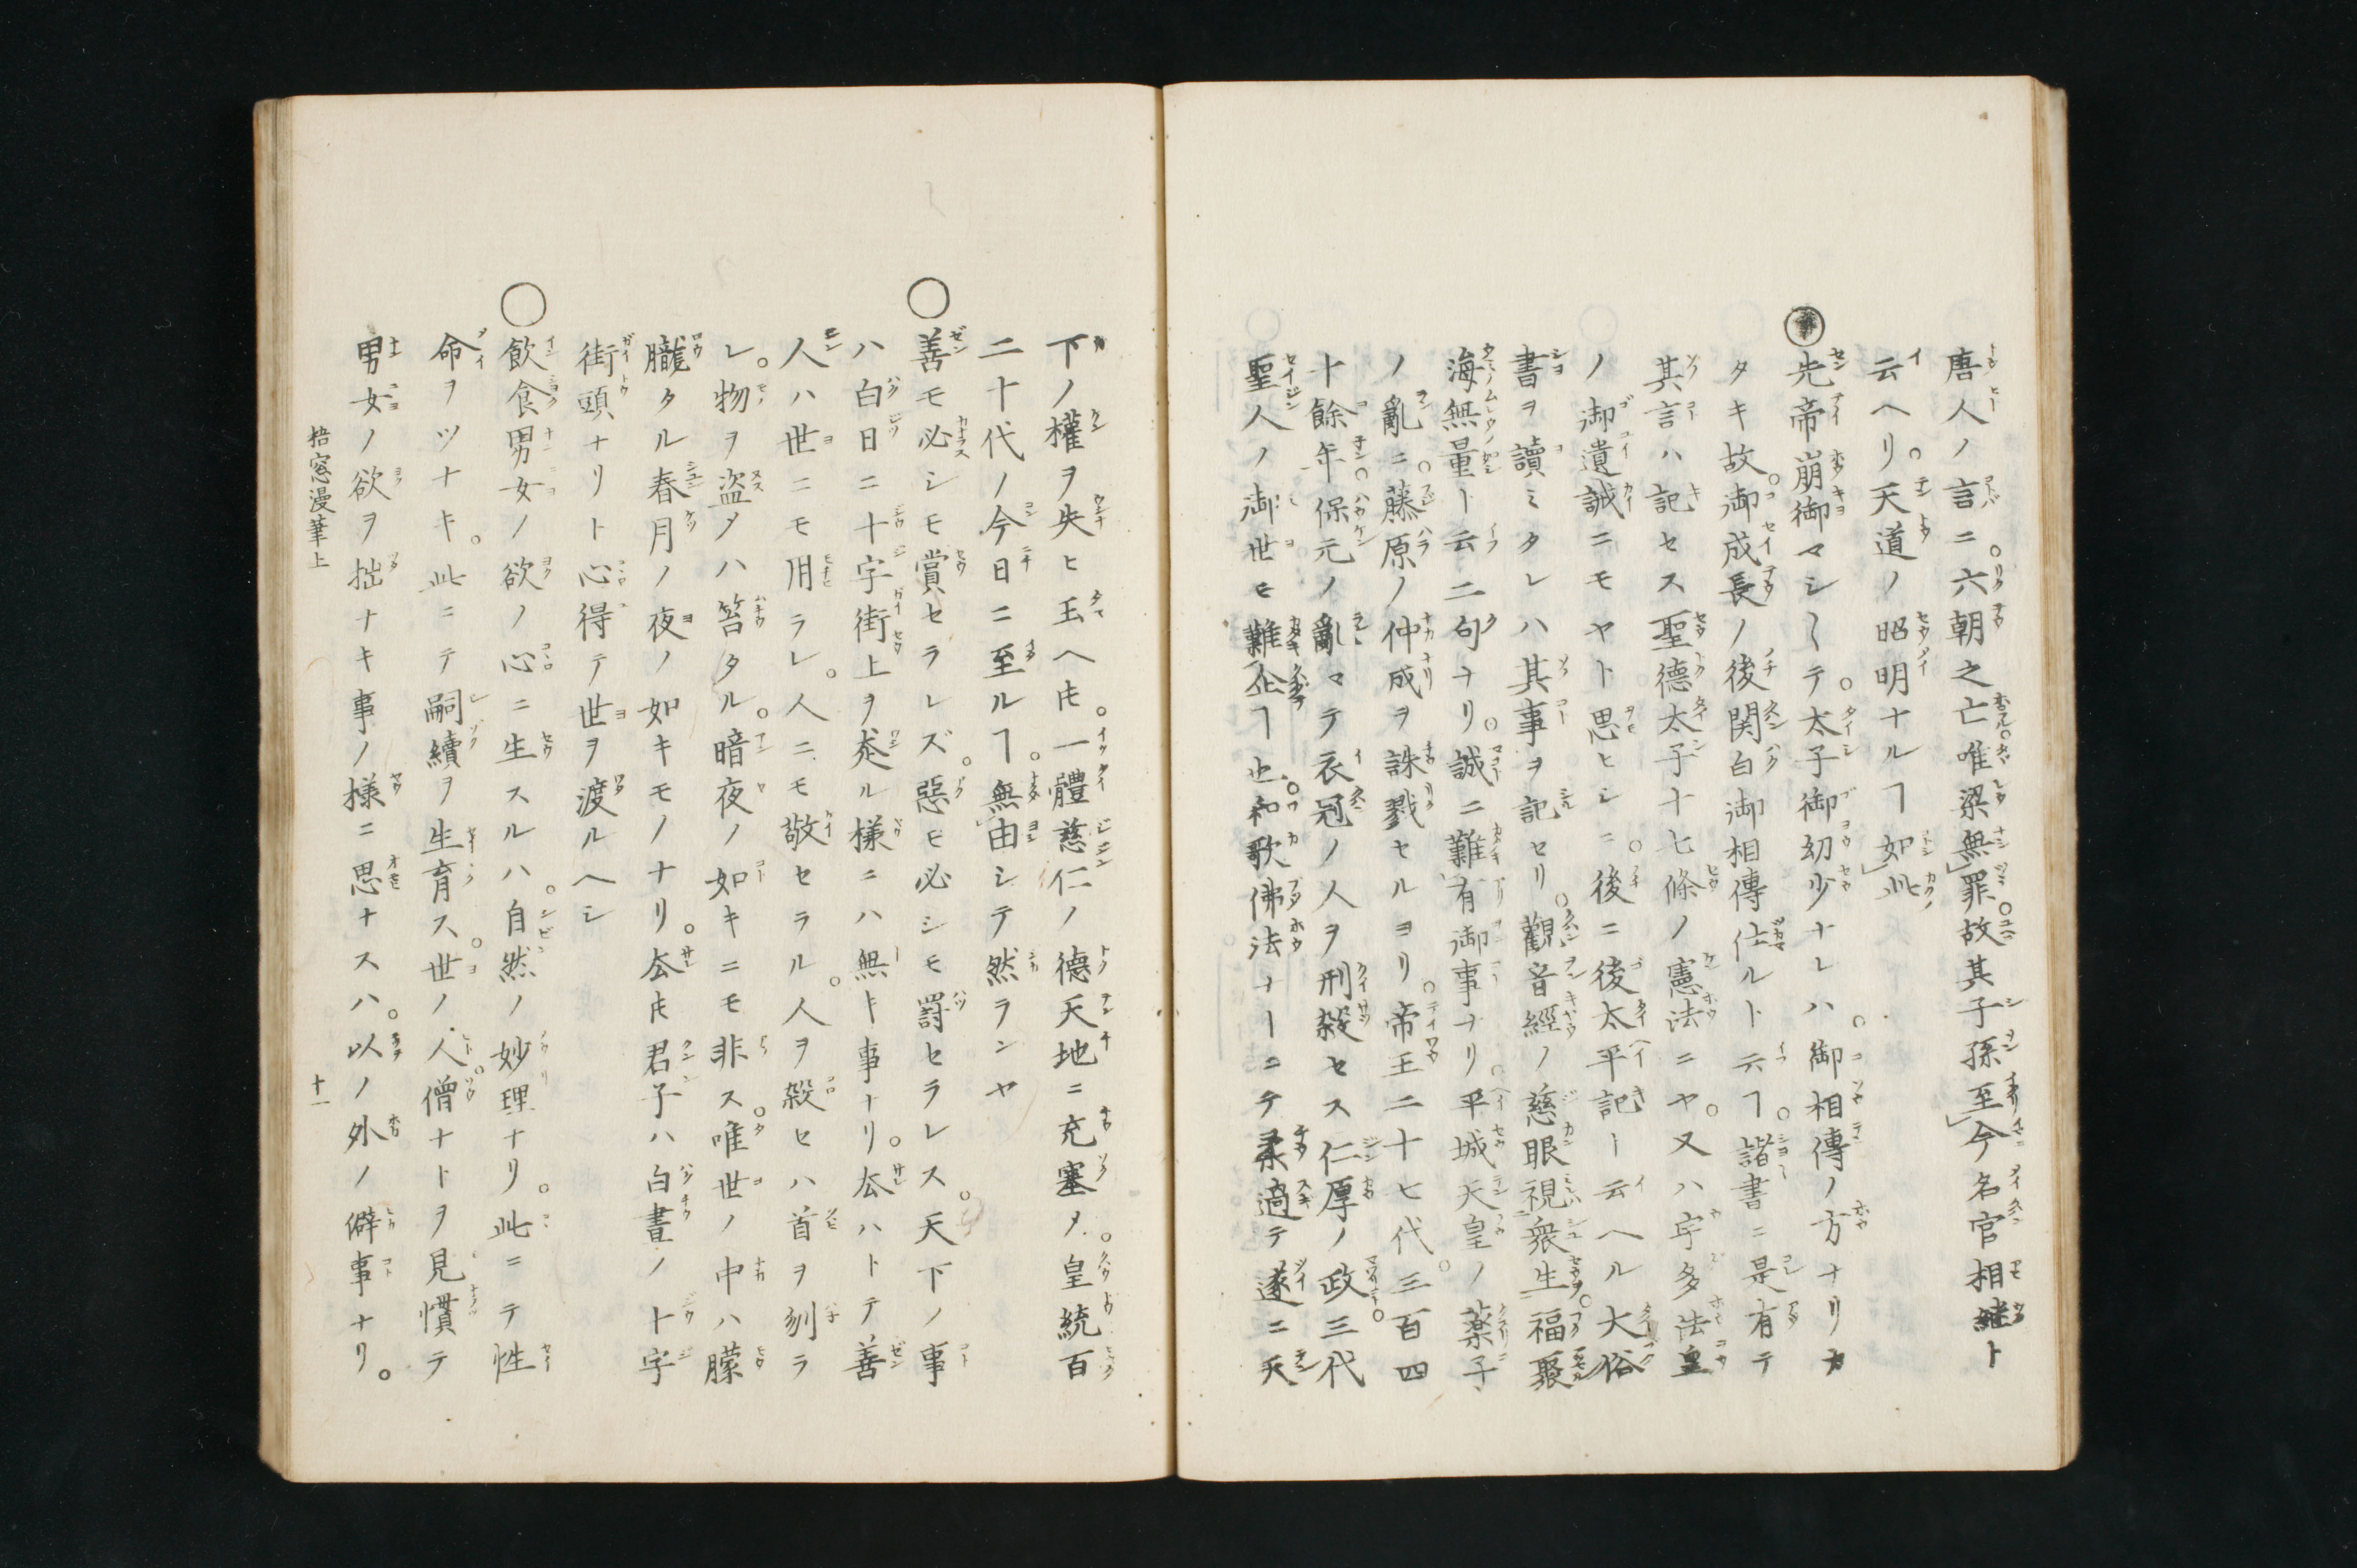 唐人ノ言ニ六朝之亡唯梁無罪故其子孫至今名官相繼ト
云ヘリ天道ノ昭明ナルヿ如此
先帝崩御マシ〳〵テ太子御幼少ナレハ御相傳ノ方ナリカ
タキ故御成長ノ後関白御相傳仕ルト云ヿ諸書ニ是有テ
其言ハ記セス聖德太子十七條ノ憲法ニヤ又ハ宇多法皇
ノ御遺誡ニモヤト思ヒシニ後ニ後太平記ト云ヘル大俗
書ヲ讀ミタレハ其事ヲ記セリ觀音經ノ慈眼視衆生福聚
海無量ト云二句ナリ誠ニ難有御事ナリ平城天皇ノ藥子
ノ亂ニ藤原ノ仲成ヲ誅戮セルヨリ帝王二十七代三百四
十餘年保元ノ亂マテ衣冠ノ人ヲ刑殺セス仁厚ノ政三代
聖人ノ御世モ難企ヿ也和歌佛法ナーニテ柔過テ遂ニ天
下ノ權ヲ失ヒ玉ヘ𪜈一體慈仁ノ德天地ニ充塞メ皇統百
二十代ノ今日ニ至ルヿ無由シテ然ランヤ
善モ必シモ賞セラレズ惡モ必シモ罸セラレス天下ノ事
ハ白日ニ十字街上ヲ走ル樣ニハ無キ事ナリ厺ハトテ善
人ハ世ニモ用ラレ人ニモ敬セラル人ヲ殺セハ首ヲ刎ラ
レ物ヲ盗メハ笞タル暗夜ノ如キニモ非ス唯世ノ中ハ朦
朧タル春月ノ夜ノ如キモノナリ厺𪜈君子ハ白晝ノ十字
街頭ナリト心得テ世ヲ渡ルヘシ
飲食男女ノ欲ノ心ニ生スルハ自然ノ妙理ナリ此ニテ性
命ヲツナキ此ニテ嗣續ヲ生育ス世ノ人僧ナトヲ見慣テ
男女ノ欲ヲ拙ナキ事ノ樣ニ思ナスハ以ノ外ノ僻事ナリ
梧窓漫筆上
十一